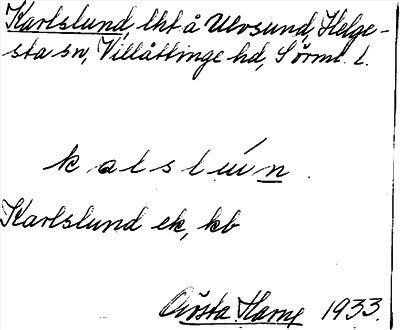 Karlslund, lht å Ulvsund, Helge-
sta sn, Villåttinge hd, Sörml. l.
kalslún
Karlslund ek, kb
Gösta Hame 1933.